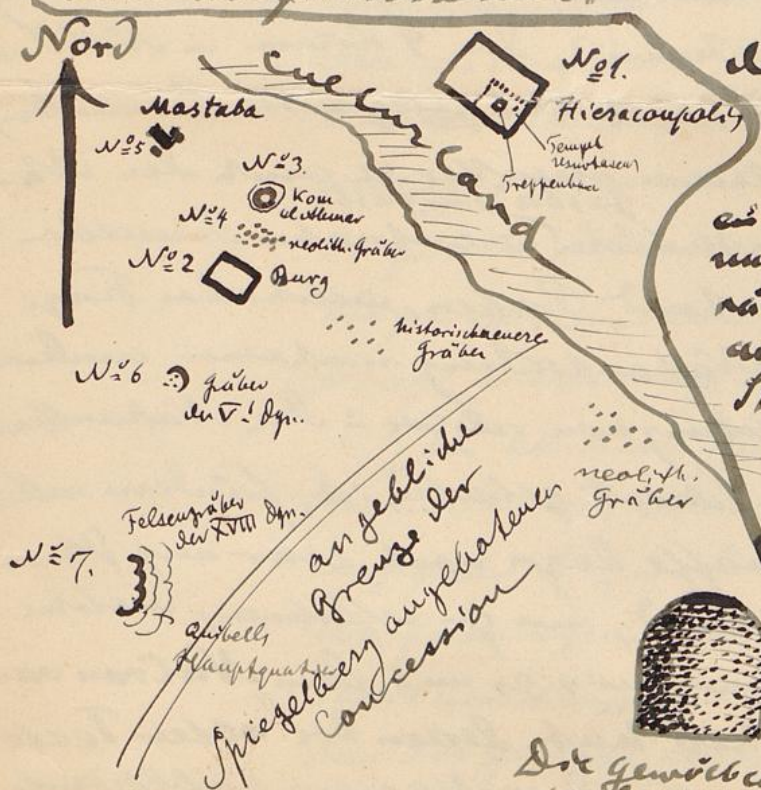 Nord
Culturland
Nº1.
Hieraconpolis
Tempel
Treppenbau
Mastaba
Nº5
Nº3.
Kom
el Ahmer
Nº4
neolith. Gräber
Nº2
Burg
historisch neuere
Gräber
Nº6
Gräber
der VI Dyn.
neolith.
Gräber
Felsengräber
der XVIII Dyn.
Nº7.
Quibells
Hauptquartier
angebliche
Grenze der
Spiegelberg angebotenen
Concession
Die gewölb